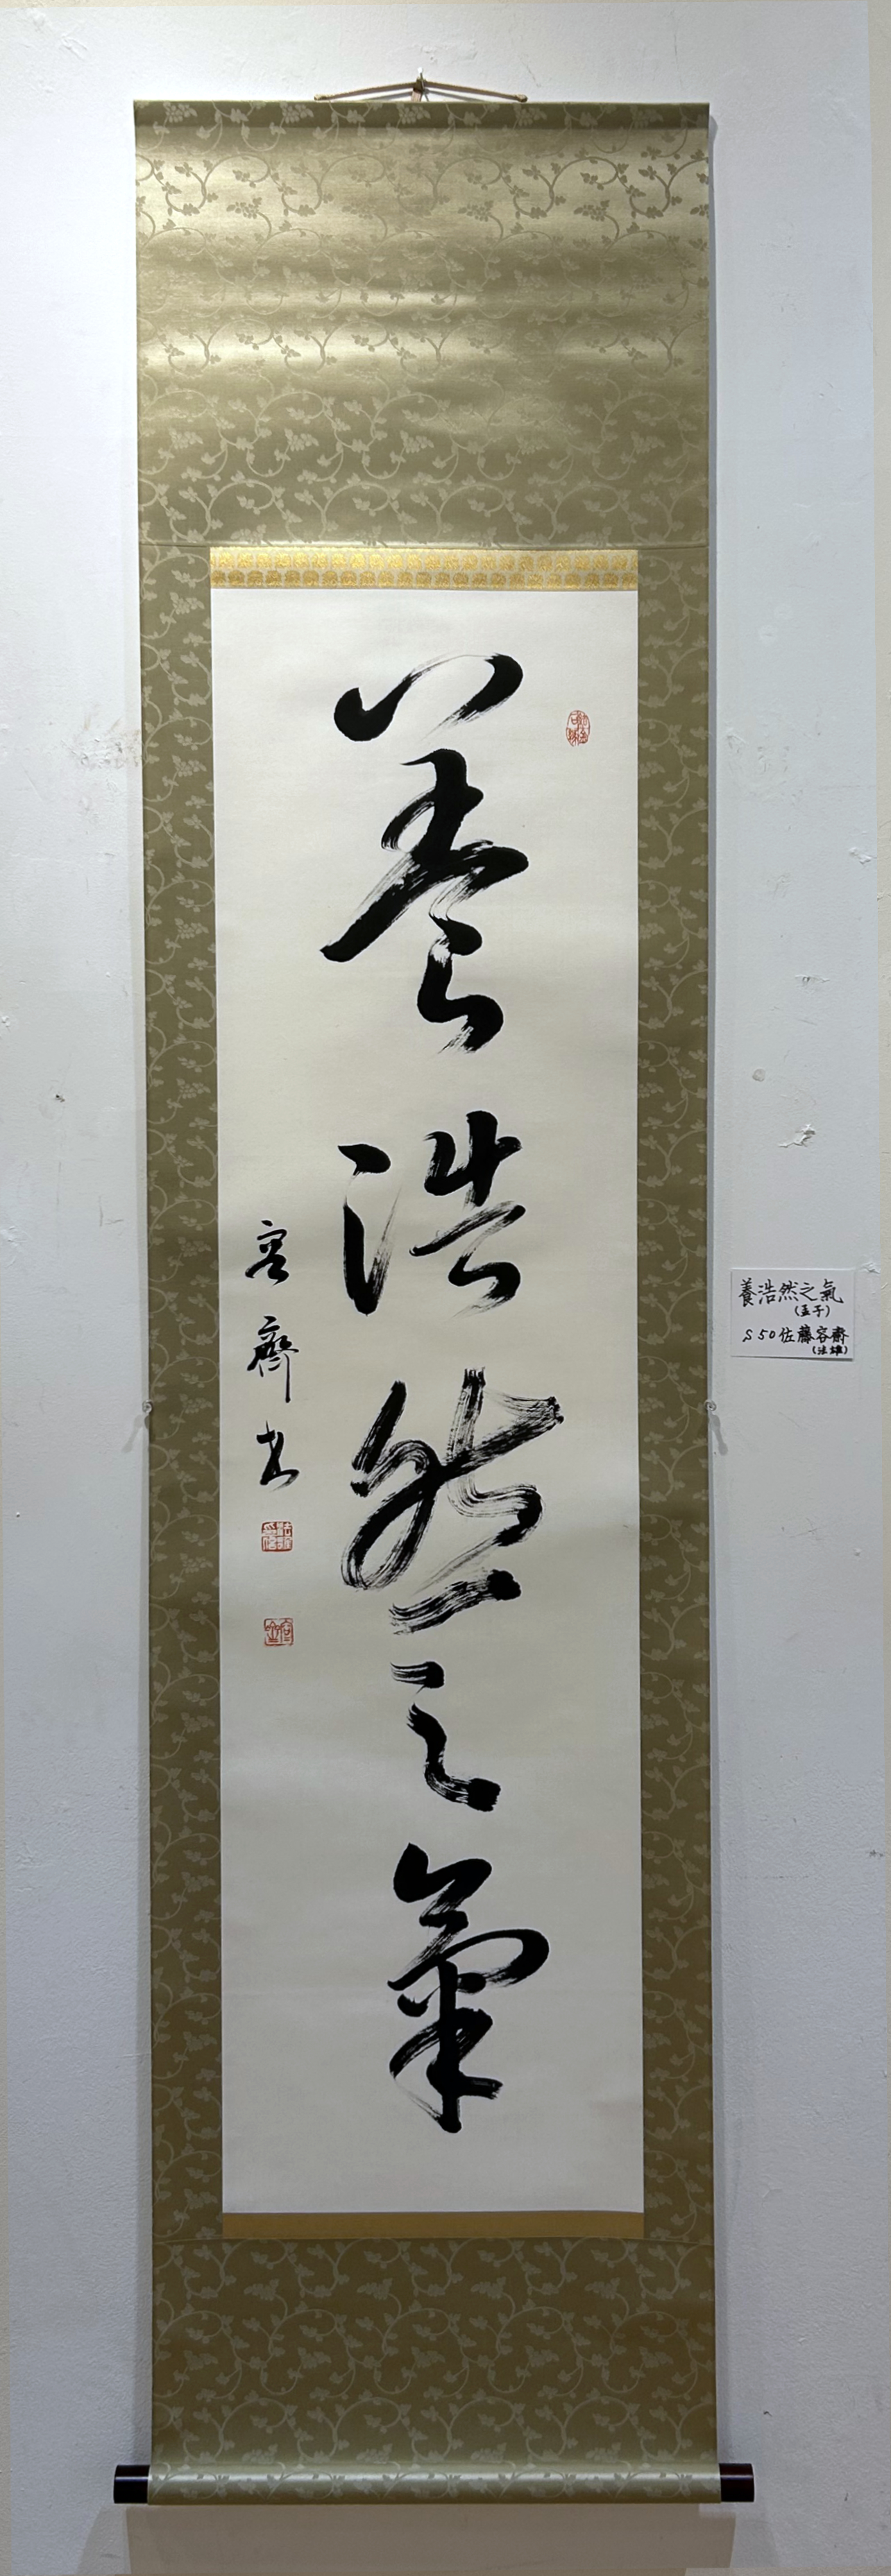 養浩然之氣
容齋書
養浩然之氣
(孟子)
S50佐藤容齋